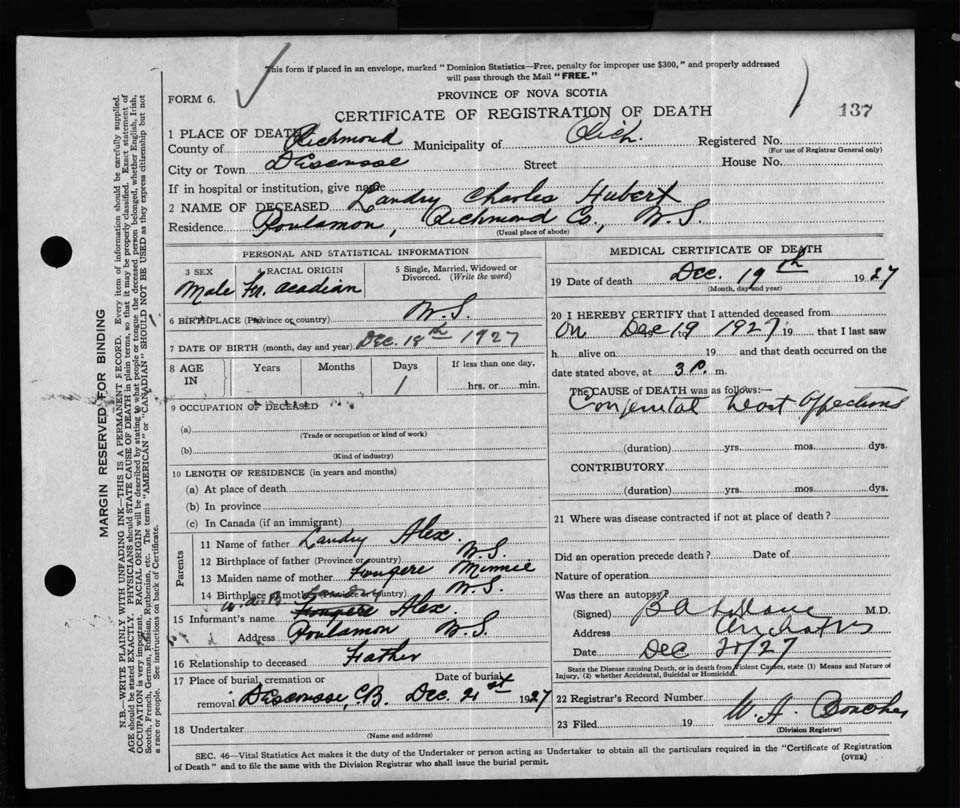 This form if placed in an envelope, marked "Dominion Statistics—Free, penalty for improper use $300," and properly addressed
will pass through the Mail "FREE."
PROVINCE OF NOVA SCOTIA
FORM 6.
CERTIFICATE OF REGISTRATION OF DEATH
137
1 PLACE OF DEATH
County of Richmond Municipality of Rich. Registered No.
(For use of Registrar General only)
City or Town Descousse Street House No.
If in hospital or institution, give name
2 NAME OF DECEASED Landry Charles Hubert
Residence Poulamon, Richmond Co., N.S.
(Usual place of abode)
PERSONAL AND STATISTICAL INFORMATION
3 SEX
Male
4 RACIAL ORIGIN
Fr. Acadian
5 Single, Married, Widowed or
Divorced. (Write the word)
6 BIRTHPLACE (Province or country) N.S.
7 DATE OF BIRTH (month, day and year) Dec. 18th 1927
8 AGE
IN
Years
Months
Days
1
If less than one day,
hrs. or min.
9 OCCUPATION OF DECEASED
(a)
(Trade or occupation or kind of work)
(b)
(Kind of industry)
10 LENGTH OF RESIDENCE (in years and months)
(a) At place of death
(b) In province
(c) In Canada (if an immigrant)
Parents
11 Name of father Landry Alex.
12 Birthplace of father (Province or country) N.S.
13 Maiden name of mother Fougere Minnie
14 Birthplace of mother (Province or country) N.S.
W.A.B. Landry
15 Informant's name Fougere Alex.
Address Poulamon N.S.
16 Relationship to deceased Father
17 Place of burial, cremation or
removal Descousse, C.B.
Date of burial
Dec. 21st 1927
18 Undertaker
(Name and address)
MEDICAL CERTIFICATE OF DEATH
19 Date of death Dec. 19th 1927
(Month, day and year)
20 I HEREBY CERTIFY that I attended deceased from
On Dec 19 1927 to 19 that I last saw
h alive on 19 and that death occurred on the
date stated above, at 3 P. m.
The CAUSE of DEATH was as follows:—
Congenital heart affections
(duration) yrs. mos. dys.
CONTRIBUTORY
(duration) yrs. mos. dys.
21 Where was disease contracted if not at place of death?
Did an operation precede death? Date of
Nature of operation
Was there an autopsy?
(Signed) M.D.
Address Arichat N.S.
Date Dec 27
State the Disease causing Death, or in death from Violent Causes, state (1) Means and Nature of
Injury, (2) whether Accidental, Suicidal or Homicidal.
22 Registrar's Record Number
23 Filed 19 W.A.
(Division Registrar)
SEC. 46—Vital Statistics Act makes it the duty of the Undertaker or person acting as Undertaker to obtain all the particulars required in the "Certificate of Registration
of Death" and to file the same with the Division Registrar who shall issue the burial permit.
(OVER)
MARGIN RESERVED FOR BINDING
N.B.—WRITE PLAINLY WITH UNFADING INK—THIS IS A PERMANENT RECORD. Every item of information should be carefully supplied.
AGE should be stated EXACTLY. PHYSICIANS should STATE CAUSE OF DEATH in plain terms, so that it may be properly classified. Exact statement of
OCCUPATION is very important. RACIAL ORIGIN will be described by stating to what people or tongue the deceased person belonged, whether English, Irish,
Scotch, French, German, Russian, Ruthenian, etc. The terms "AMERICAN" or "CANADIAN" SHOULD NOT BE USED as they express citizenship but not
a race or people. See instructions on back of Certificate.